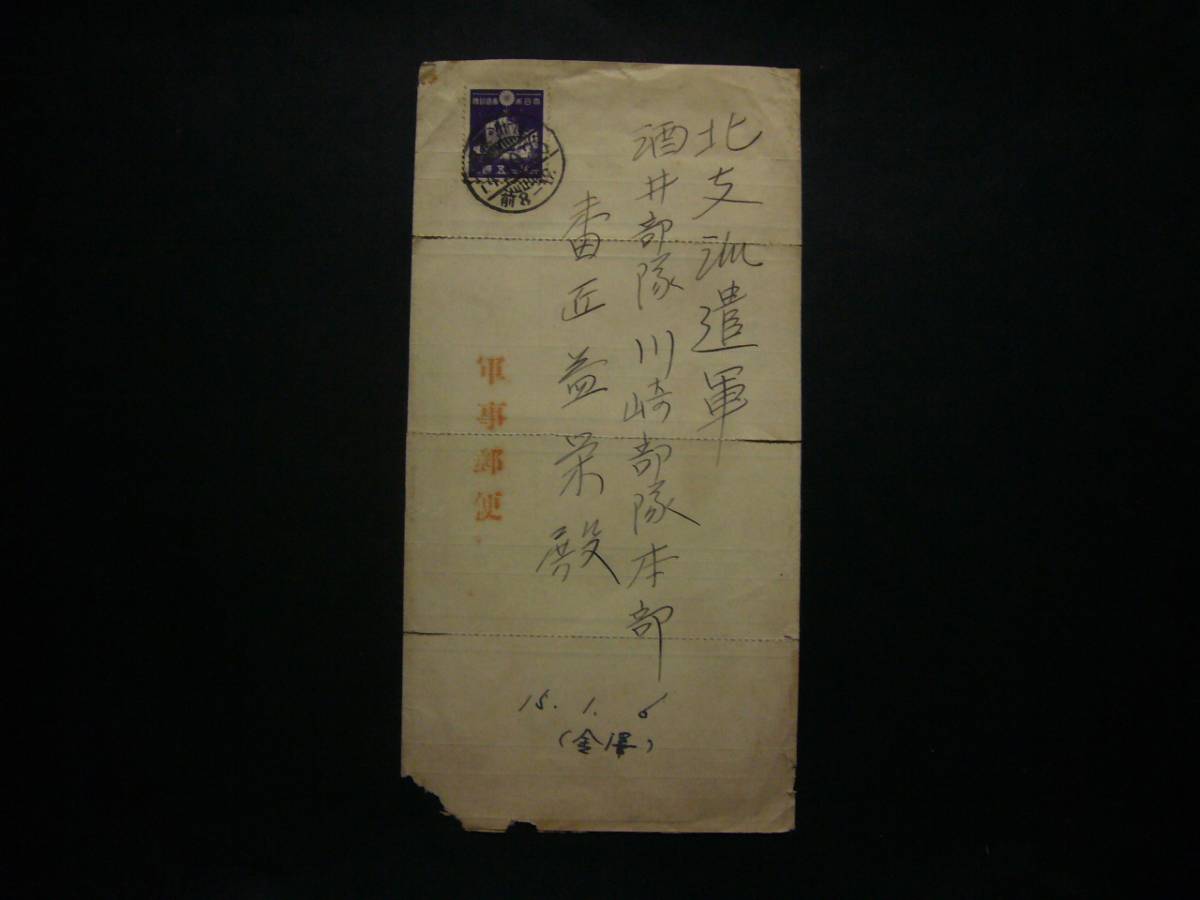 北支派遣軍
酒井部隊川崎部隊本部
番匠益栄殿
軍事郵便
15. 1. 6
大日本帝国郵便
前8-